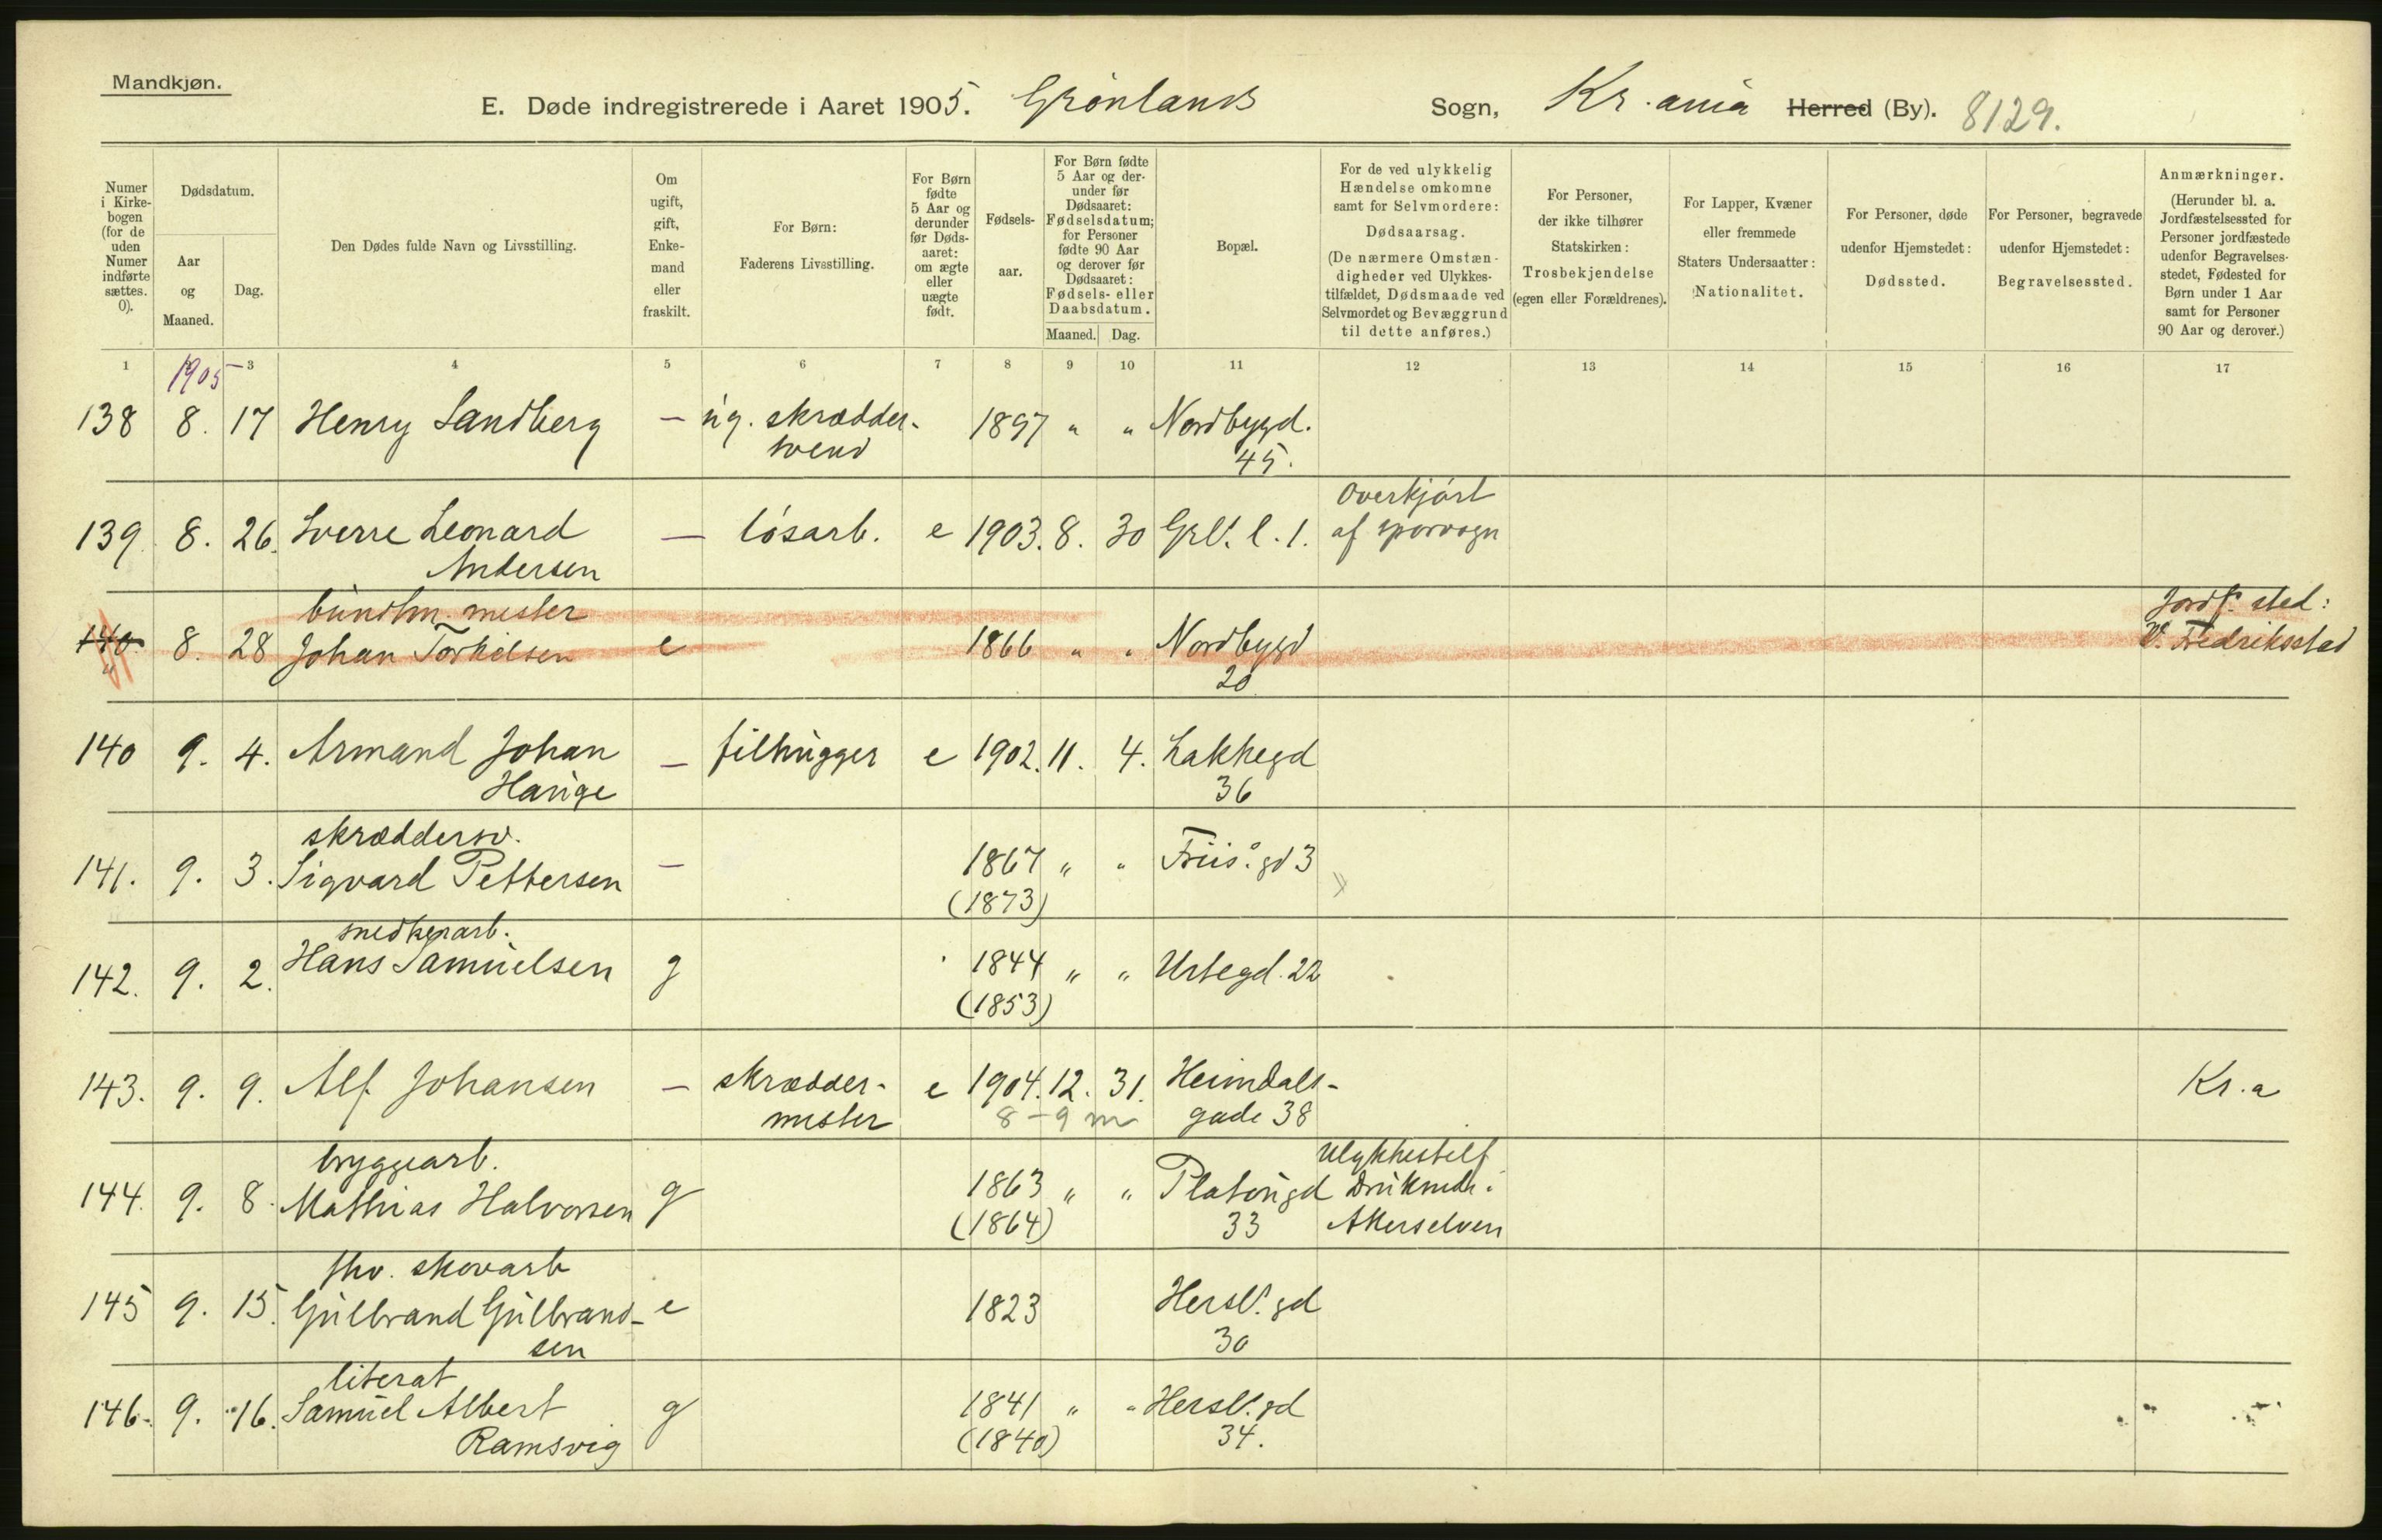 Mandkjøn.
E. Døde indregistrerede i Aaret 1905. Grønlands Sogn, Kr.ania Herred (By). 8129.
Numer i Kirkebogen (for de uden Numer indførte sættes. 0).
Dødsdatum.
Aar og Maaned.
Dag.
Den Dødes fulde Navn og Livsstilling.
Om ugift, gift, Enkemand eller fraskilt.
For Børn: Faderens Livsstilling.
For Børn fødte 5 Aar og derunder før Dødsaaret: om ægte eller uægte født.
Fødselsaar.
For Børn fødte 5 Aar og derunder før Dødsaaret: Fødselsdatum; for Personer fødte 90 Aar og derover før Dødsaaret: Fødsels- eller Daabsdatum.
Maaned. Dag.
Bopæl.
For de ved ulykkelig Hændelse omkomne samt for Selvmordere: Dødsaarsag. (De nærmere Omstændigheder ved Ulykkestilfældet, Dødsmaade ved Selvmordet og Bevæggrund til dette anføres.)
For Personer, der ikke tilhører Statskirken: Trosbekjendelse (egen eller Forældrenes).
For Lapper, Kvæner eller fremmede Staters Undersaatter: Nationalitet.
For Personer, døde udenfor Hjemstedet: Dødssted.
For Personer, begravede udenfor Hjemstedet: Begravelsessted.
Anmærkninger. (Herunder bl. a. Jordfæstelsessted for Personer jordfæstede udenfor Begravelsesstedet, Fødested for Børn under 1 Aar samt for Personer 90 Aar og derover.)
1 3 4 5 6 7 8 9 10 11 12 13 14 15 16 17
1905
138 8. 17 Henry Sandberg — ug. skrædder- 1897 " " Nordbygd.
svend 45.
139. 8. 26. Sverre Leonard — løsarb. e 1903. 8. 30 Grl. l. 1. Overkjørt af sporvogn
Andersen
bundtm. mester Jordf. sted:
140 8. 28 Johan Torkelsen e 1866 " " Nordbygd V. Fredriksstad
" 20
140 9. 4. Armand Johan — filhugger e 1902. 11. 4. Lakkegd
Hauge 36
skræddersv.
141. 9. 3. Sigvard Pettersen — 1867 " " Friis. gd 3
(1873)
snedkerarb.
142. 9. 2. Hans Samuelsen g 1844 " " Urtegd. 22
(1853)
143. 9. 9. Alf Johansen — skrædder- e 1904. 12. 31. Heimdals- Kr.a
mester 8-9 m gade 38
bryggearb. Ulykkestilf
144. 9. 8. Mathias Halvorsen g 1863 " " Platougd Druknede i
(1864) 33 Akerselven
fhv. skovarb
145 9. 15. Gulbrand Gulbrand- e 1823 Hersl. gd
sen 30
literat
146. 9. 16. Samuel Albert g 1841 " " Hersl. gd
Ramsvig (1840) 34.